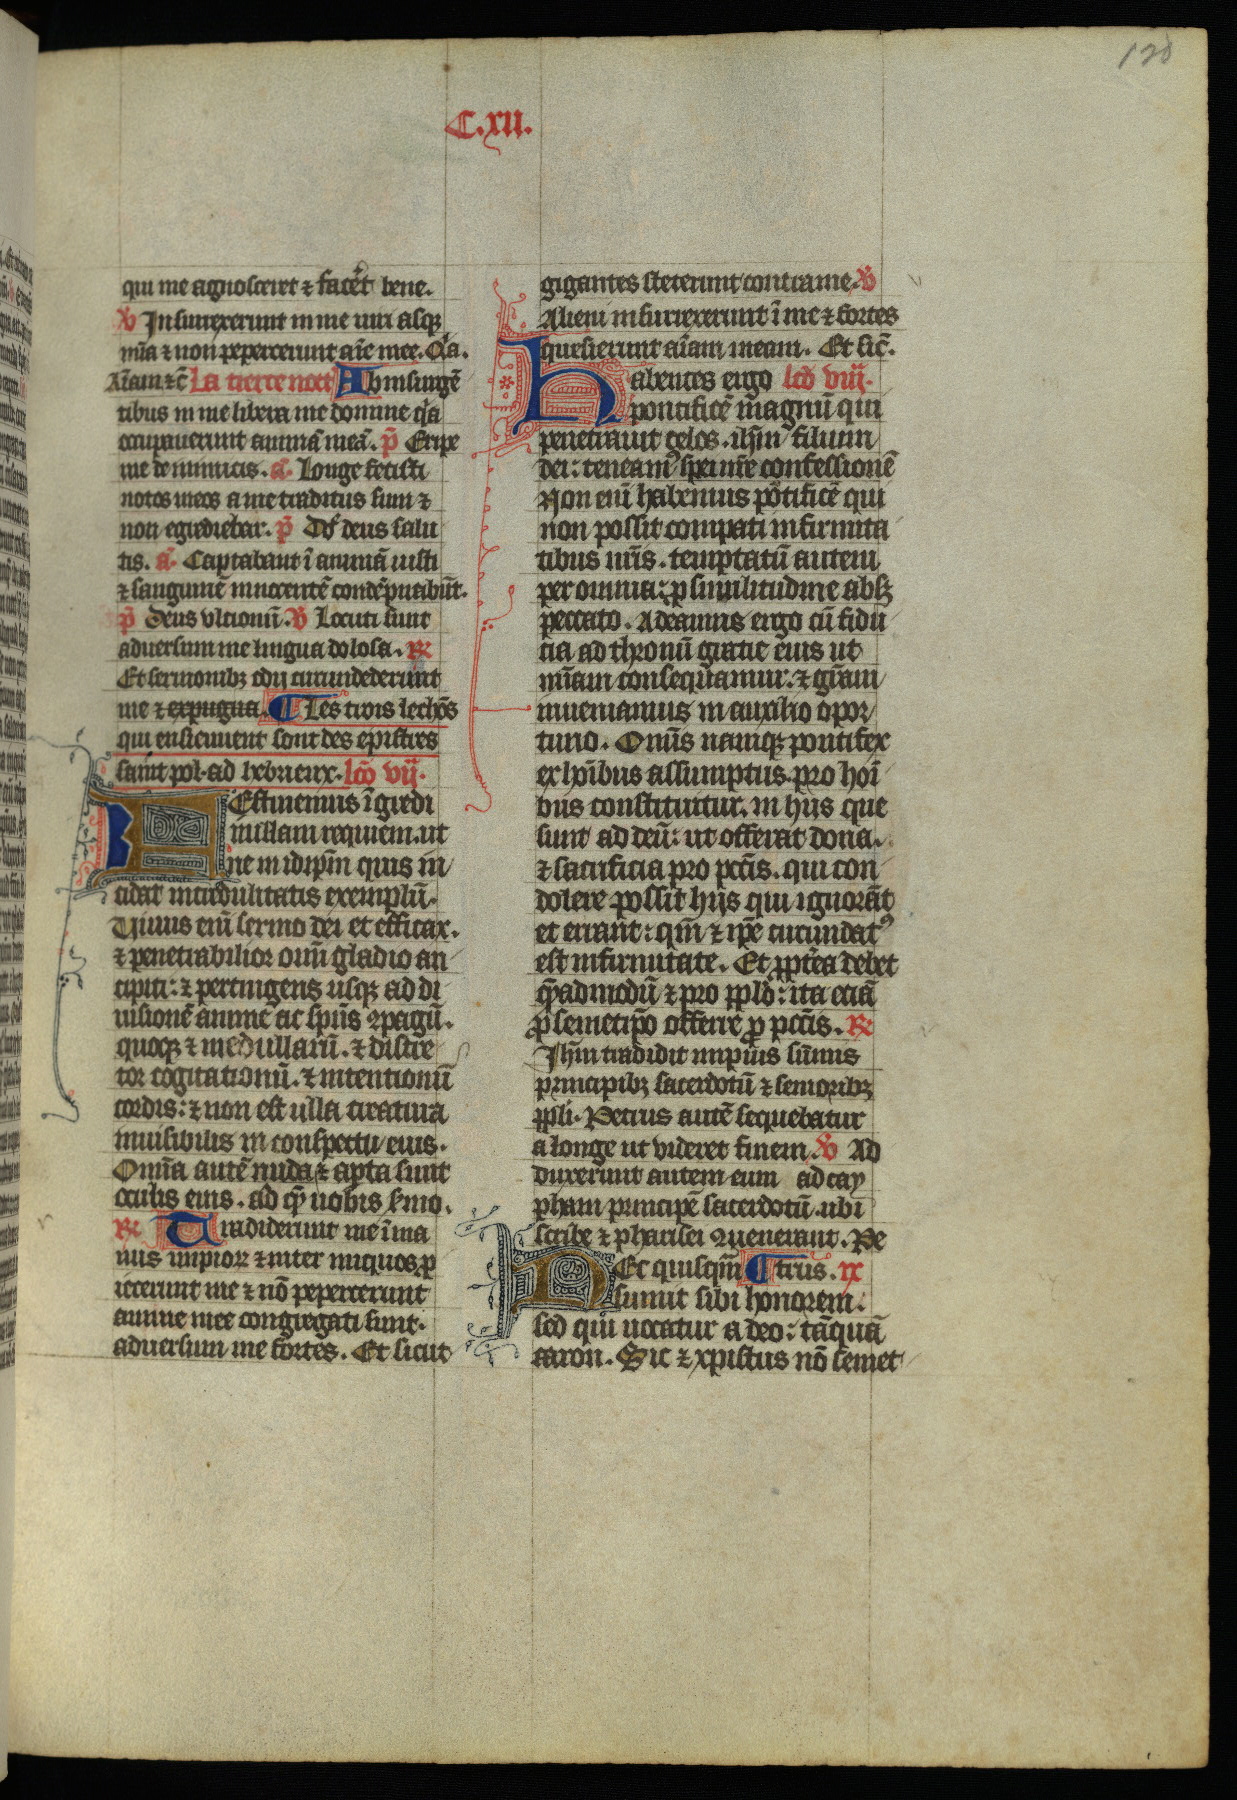 120
C.xii.
qui me agnosceret ⁊ facēt bene.
℣ Insurrexerunt in me uiri absq̨
mīa ⁊ non pepercerunt aīe mee. Qa.
Aīam ⁊c̄ La tierce noct Ab insurgē
tibus in me libera me domine qa
occupauerunt animā meā. p̄ Eripe
me de inimicis. a. Longe fecisti
notos meos a me traditus sum ⁊
non egrediebar. p̄ Dn̄s deus salu
tis. a. Captabant ī animā iusti
⁊ sanguinē innocentē condēpnabūt.
p̄ Deus vltionū. ℣ Locuti sunt
aduersum me lingua dolosa. ℟
Et sermonibȝ odij circundederunt
me ⁊ expugna. Les trois lechōs
qui ensieuuent sont des epistres
saint pol. ad hebrieux. lcō vij.
Festinemus īgredi
in illam requiem. ut
ne in idip̄m quis in
cidat incredulitatis exemplū.
Viuus enī sermo dei et efficax.
⁊ penetrabilior om̄i gladio an
cipiti: ⁊ pertingens usq̨ ad di
uisionē anime ac sp̄us ꝯpagū.
quoq̨ ⁊ medullarū. ⁊ discre
tor cogitationū. ⁊ intentionū
cordis: ⁊ non est ulla creatura
inuisibilis in conspectu eius.
Omīa autē nuda ⁊ apta sunt
oculis eius. ad quē nobis s̄mo.
℟ Tradiderunt me ī ma
nus impioꝝ ⁊ inter iniquos ꝓ
iecerunt me ⁊ nō pepercerunt
anime mee congregati sunt.
aduersum me fortes. Et sicut
gigantes steterunt contra me. ℣
Alieni insurrexerunt ī me ⁊ fortes
quesierunt aīam meam. Et sic̄.
Habentes ergo lcō viij.
pontificē magnū qui
penetrauit celos. ih̄m filium
dei: teneamꝰ spei nr̄e confessionē
Non enī habemus pōtificē qui
non possit compati infirmita
tibus nr̄is. temptatū autem
per omnia: ꝑ similitudine absȝ
peccato. Adeamus ergo cū fidu
cia ad thronū gratie eius ut
mīam consequamur. ⁊ grām
inueniamus in auxilio opor
tuno. Omīs namq̨ pontifex
ex hoībus assumptus. pro hoī
bus constituitur. in hijs que
sunt ad deū: ut offerat dona.
⁊ sacrificia pro pcc̄is. qui con
dolere possit hijs qui ignorāt
et errant: qm̄ ⁊ ip̄e circundatꝰ
est infirmitate. Et ꝓpt̄ea debet
quēadmodū ⁊ pro ppl̄o: ita eciā
ꝓ semetip̄o offerre ꝓ pcc̄is. ℟
Ih̄m tradidit impius sūmis
principibȝ sacerdotū ⁊ senioribȝ
ppl̄i. Petrus autē sequebatur
a longe ut videret finem. ℣ Ad
duxerunt autem eum ad cay
pham principē sacerdotū. ubi
scribe ⁊ pharisei ꝯuenerant. Pe
Nec quisqm̄ trus. ix
sumit sibi honorem.
sed qui uocatur a deo: tāquā
aaron. Sic ⁊ xpistus nō semet